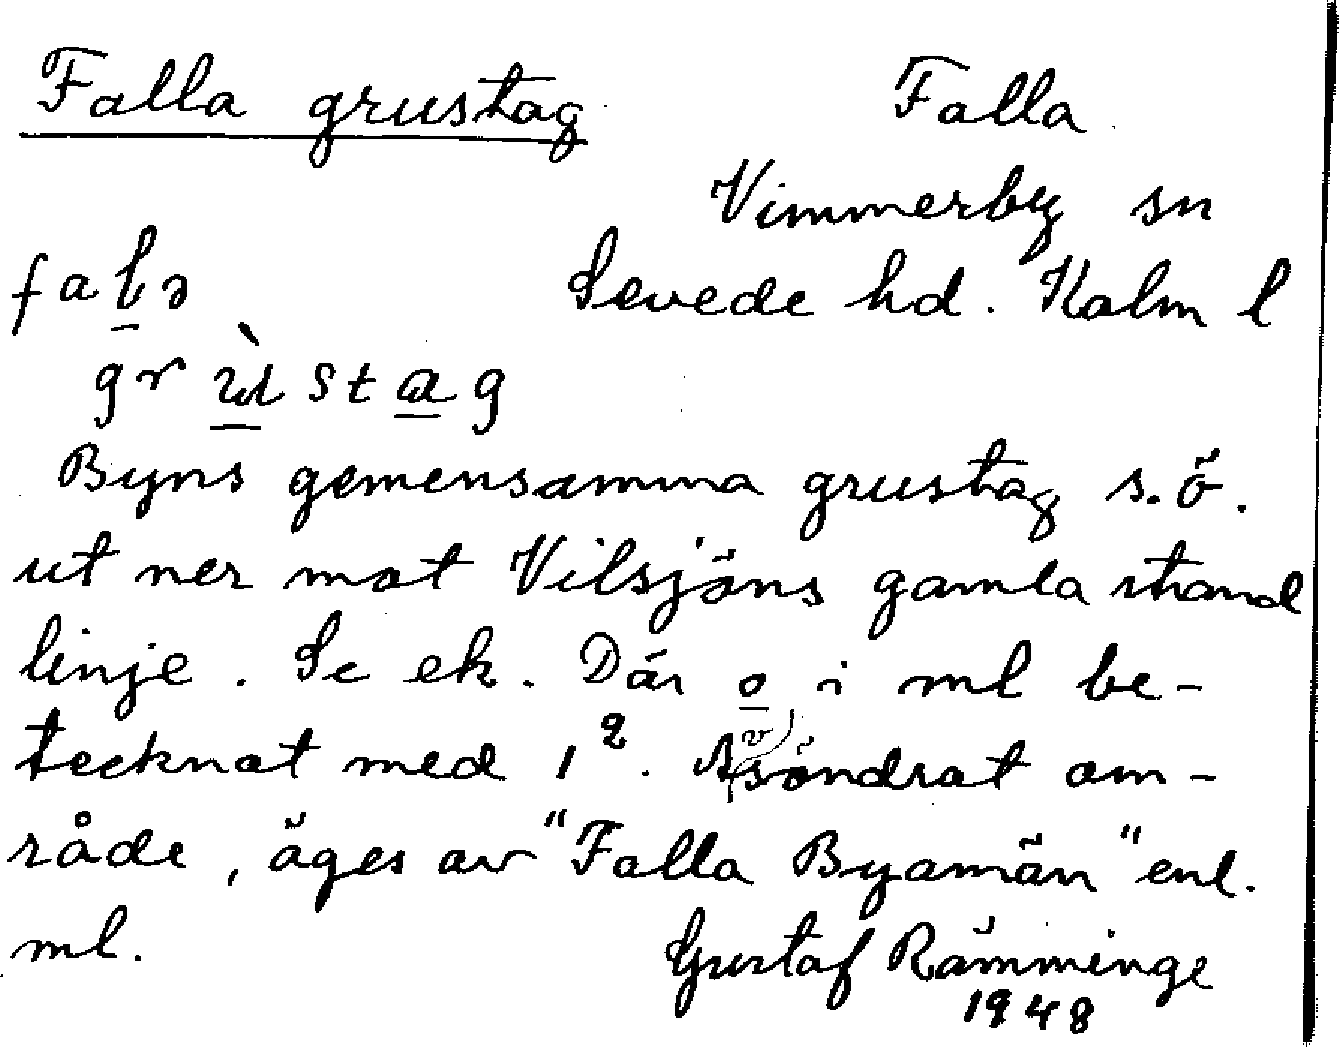 Falla grustag
Falla
Vimmerby sn
Sevede hd. Kalm l
falə
grùstag
Byns gemensamma grustag s.ö.
ut ner mot Vilsjöns gamla strand
linje. Se ek. Där o i ml be-
tecknat med 1². Avsöndrat om-
råde, äges av "Falla Byamän" enl.
ml.
Gustaf Rämminge
1948